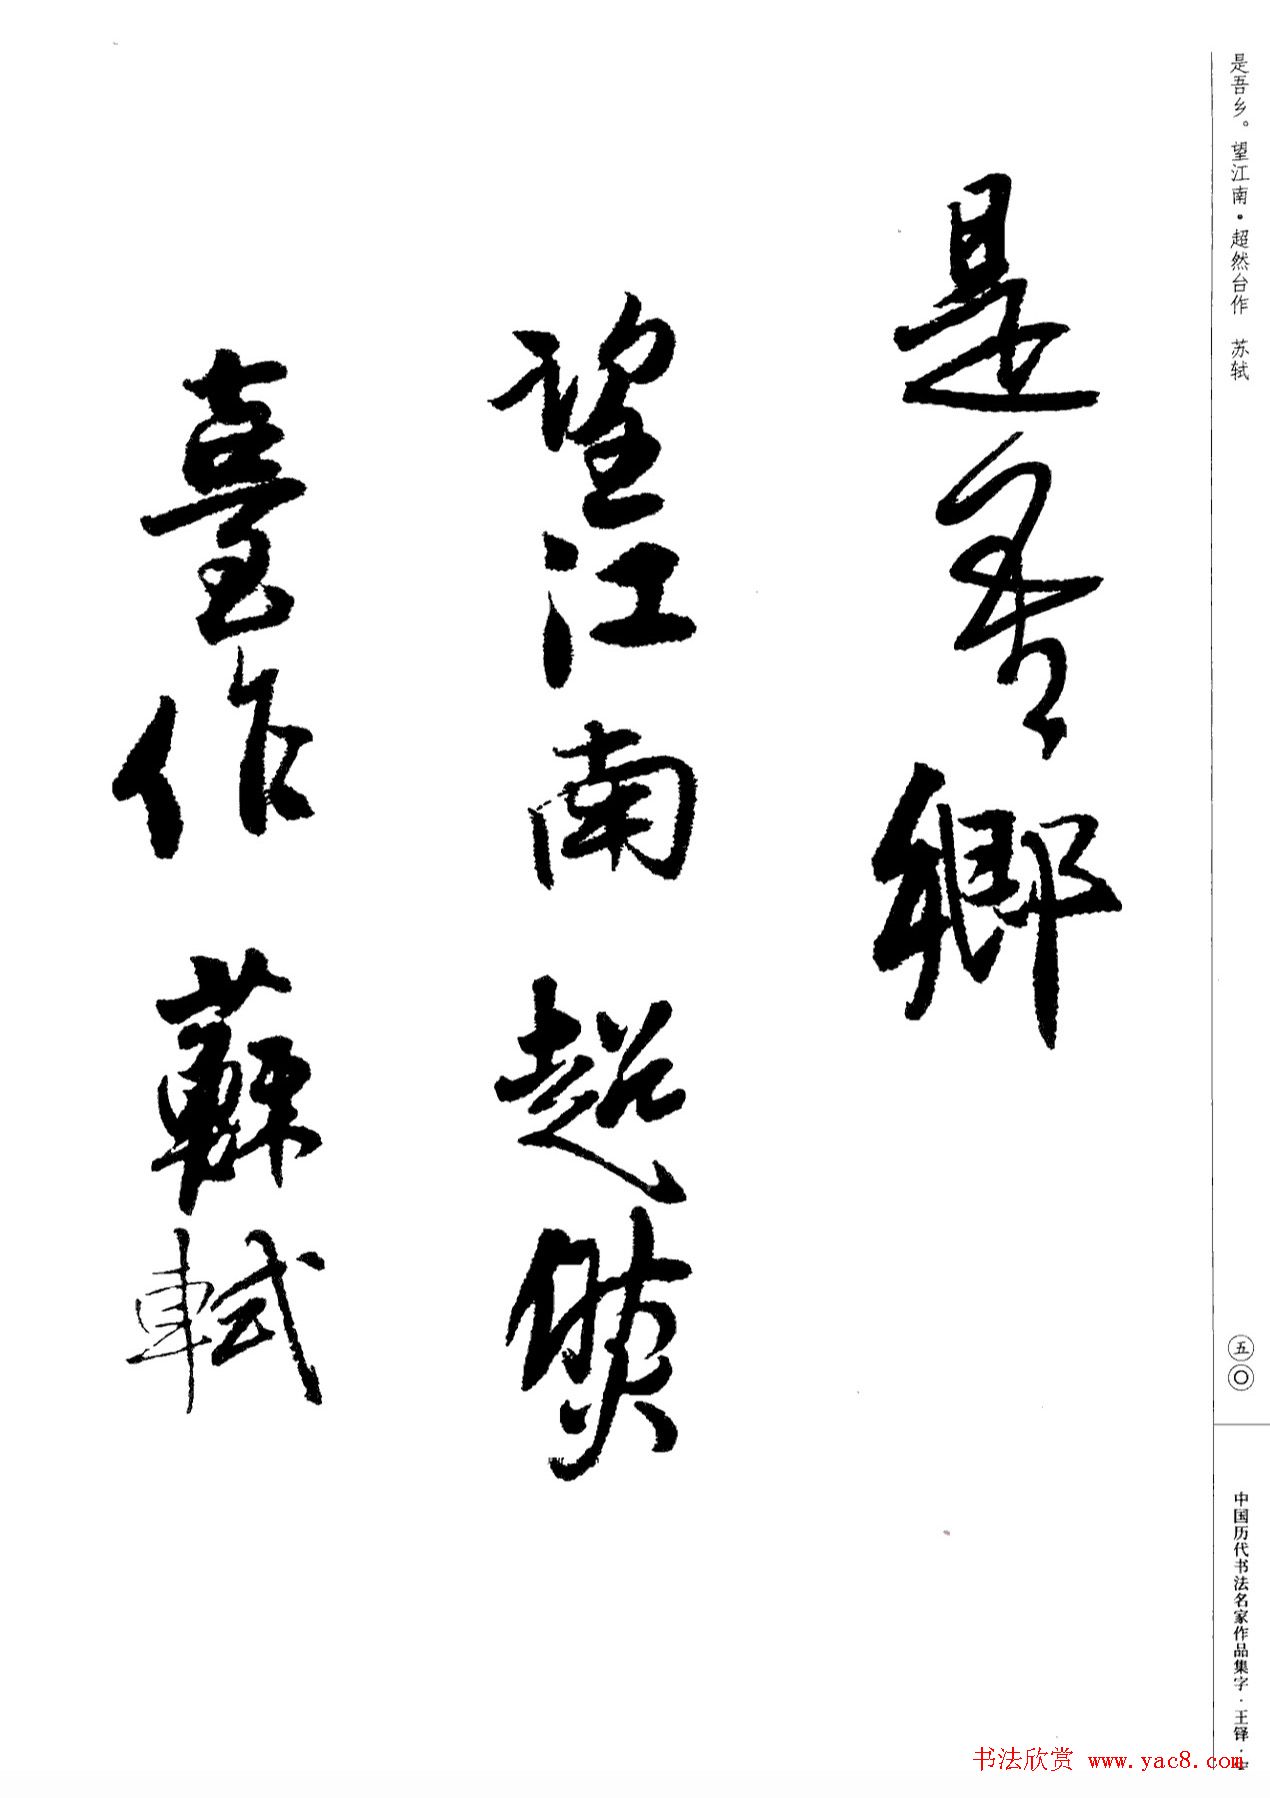 是吾乡。望江南·超然台作 苏轼
是吾鄉
望江南超然
臺作蘇軾
五〇
中国历代书法名家作品集字·王铎·
书法欣赏 www.yac8.com